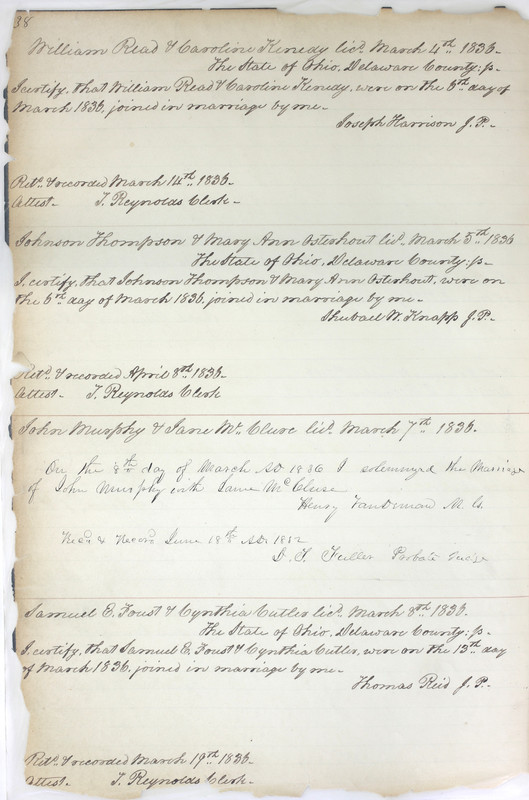 38
William Read & Caroline Kenedy licd. March 4th 1836.
The State of Ohio, Delaware County: ss.
I certify, that William Read & Caroline Kenedy, were on the 6th day of
March 1836, joined in marriage by me.
Joseph Harrison J.P.
Retd. & recorded March 14th 1836.
Attest. T. Reynolds Clerk.
Johnson Thompson & Mary Ann Osterhout licd. March 5th 1836
The State of Ohio, Delaware County: ss.
I certify, that Johnson Thompson & Mary Ann Osterhout, were on
the 6th day of March 1836, joined in marriage by me.
Shubael W. Knapp J.P.
Retd. & recorded April 8th 1836.
Attest. T. Reynolds Clerk
John Murphy & Jane Mc Clure licd. March 7th 1836.
On the 8th day of March AD 1836 I solemnzed the Marriage
of John Murphy with Jane McCluse
Henry Vandeman M. G.
Recd & Record June 18th AD 1852
D. T. Fuller Probate Judge
Samuel E. Foust & Cynthia Cutler licd. March 8th 1836.
The State of Ohio, Delaware County: ss.
I certify, that Samuel E. Foust & Cynthia Cutler, were on the 13th day
of March 1836, joined in marriage by me.
Thomas Reid J.P.
Retd. & recorded March 19th 1836.
Attest. T. Reynolds Clerk.